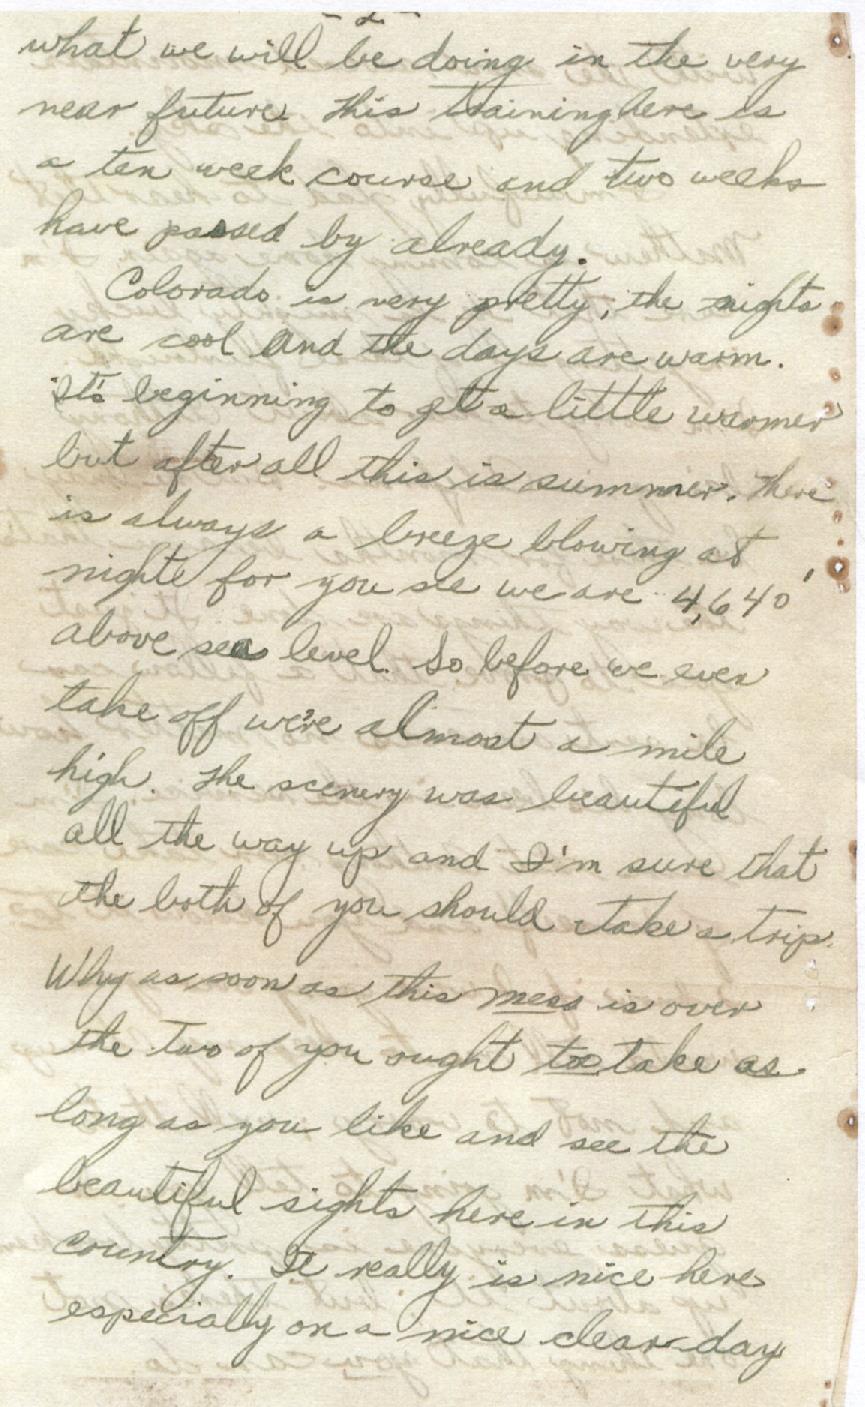 - 2 -
what we will be doing in the very
near future. This training here is
a ten week course and two weeks
have passed by already.
Colorado is very pretty, the nights
are cool and the days are warm.
It's beginning to get a little warmer
but after all this is summer. There
is always a breeze blowing at
nights for you see we are 4,640'
above sea level. So before we even
take off we're almost a mile
high. The scenery was beautiful
all the way up and I'm sure that
the both of you should take a trip.
Why as soon as this mess is over
the two of you ought to take as
long as you like and see the
beautiful sights here in this
country. It really is nice here
especially on a nice clear day